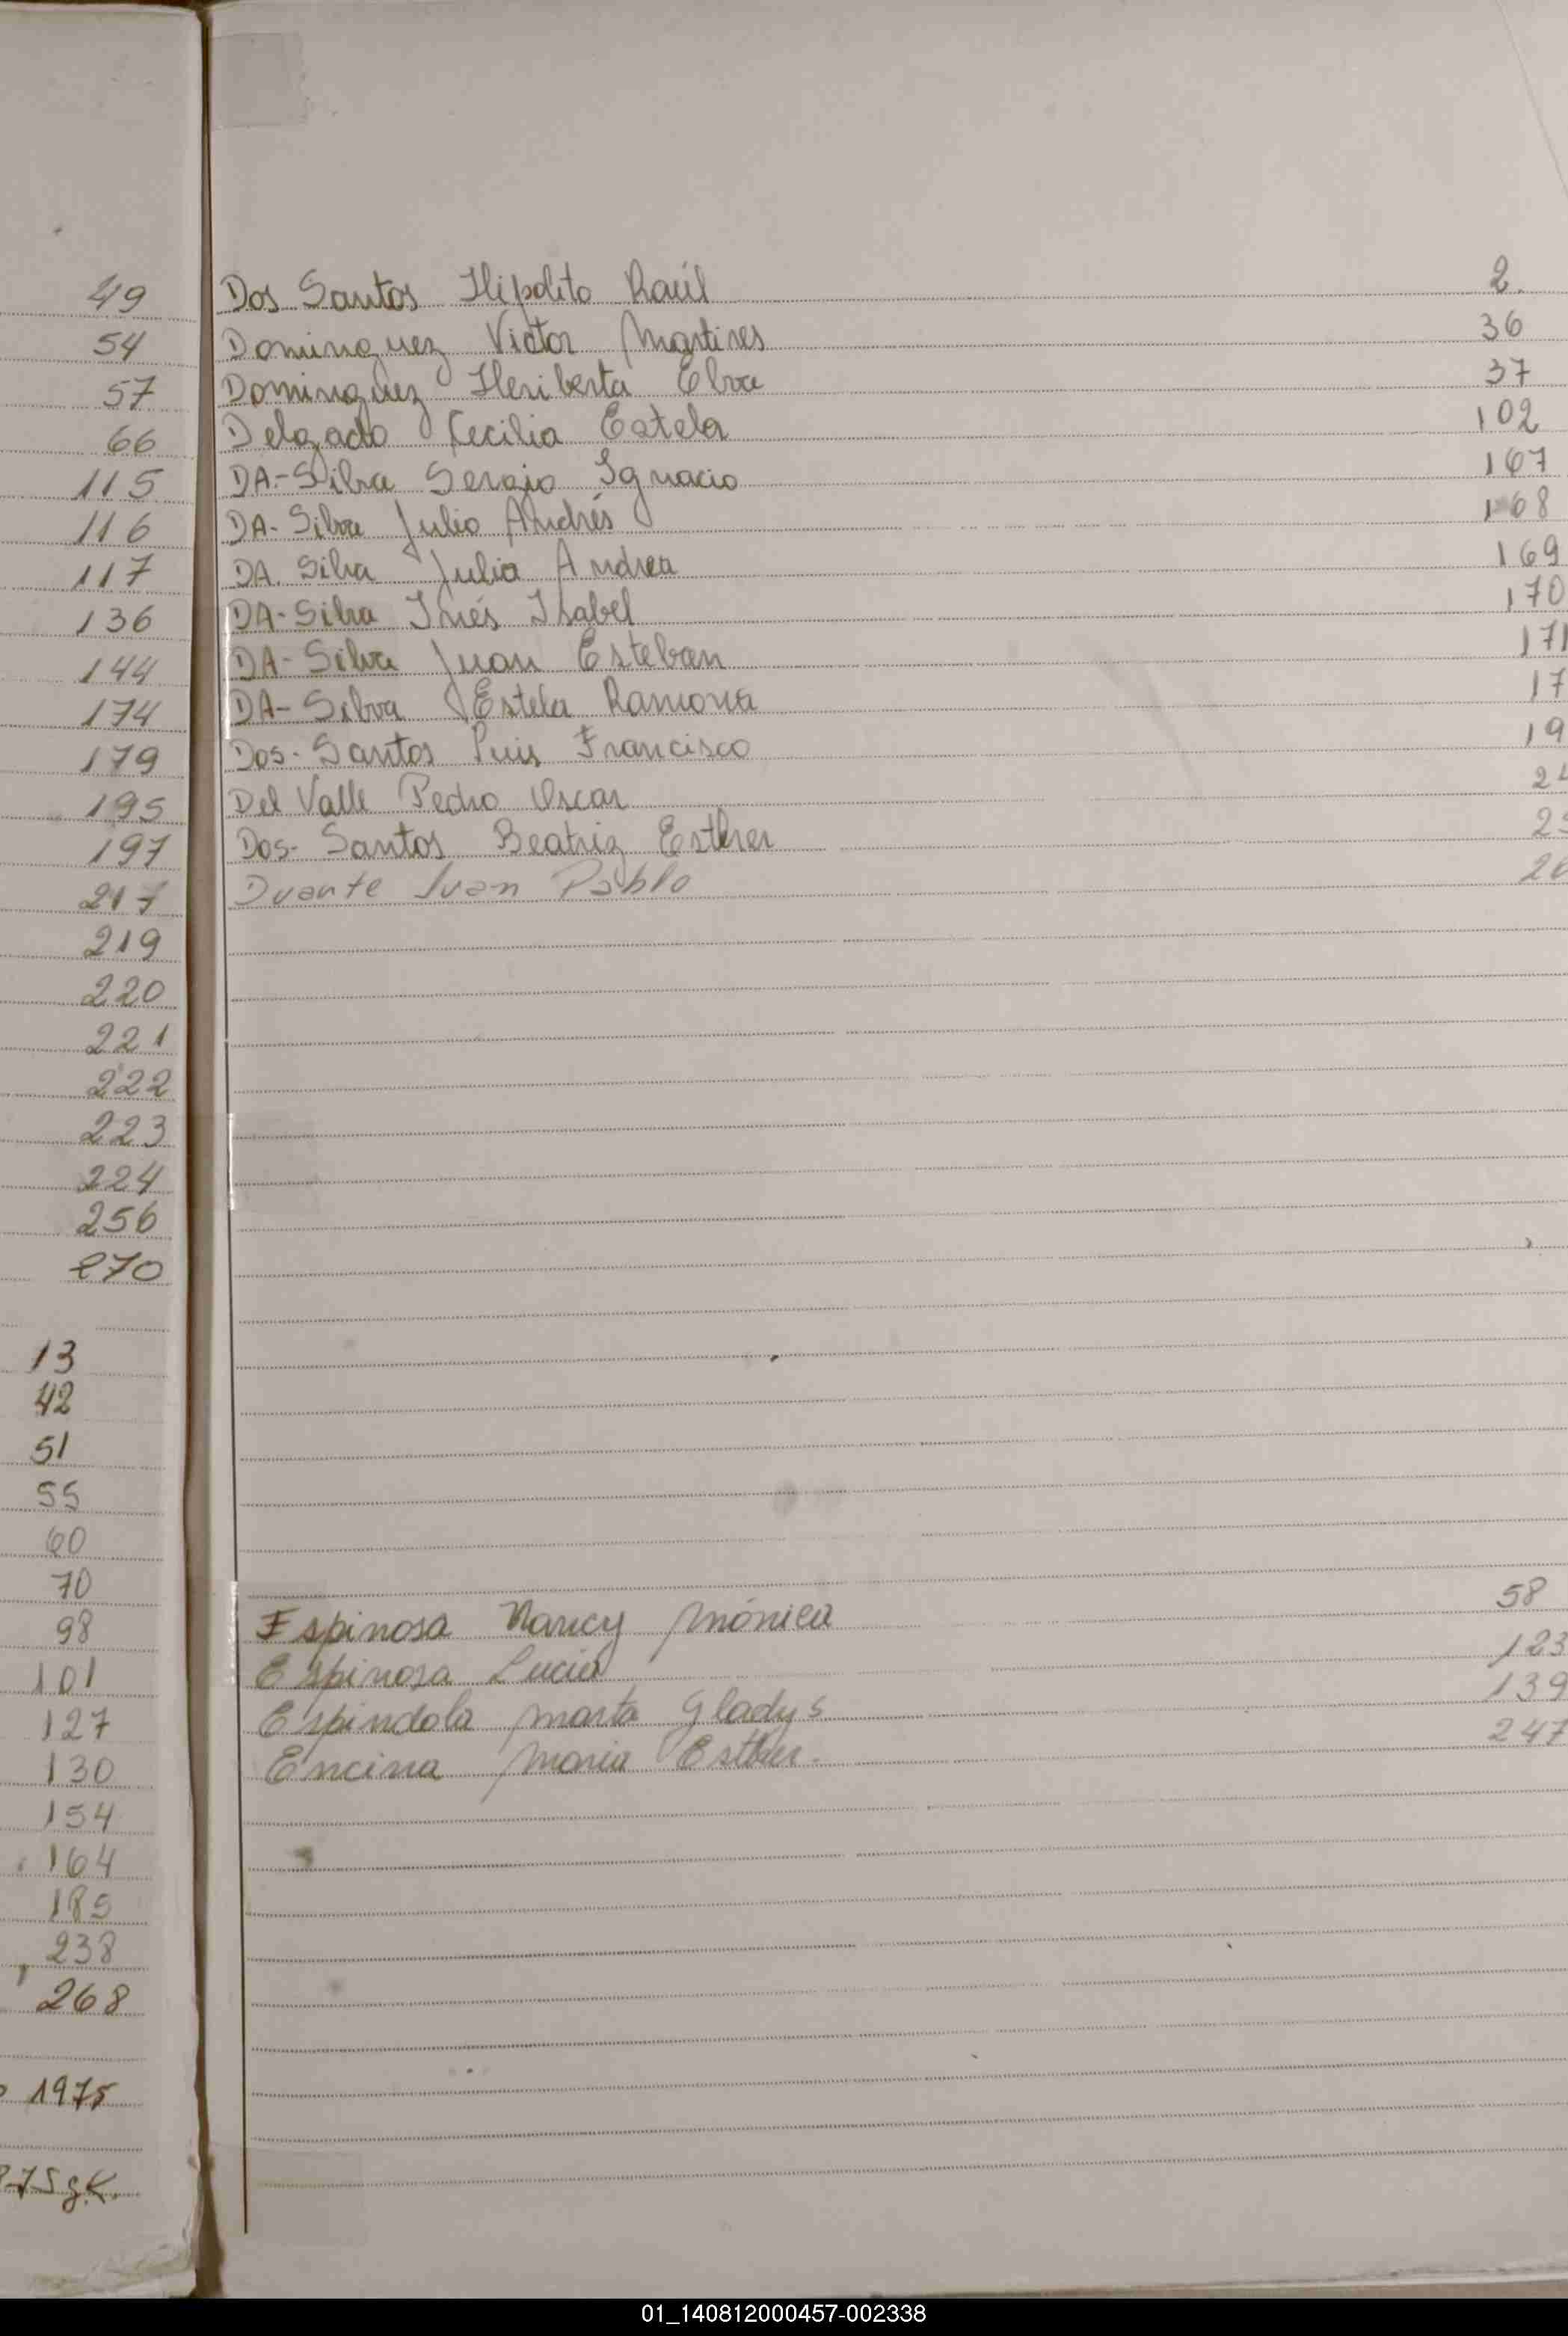 49
54
57
66
115
116
117
136
144
174
179
195
197
217
219
220
221
222
223
224
256
270
13
42
51
55
60
70
98
101
127
130
154
164
185
238
268
1975
Dos Santos Hipolito Raúl 2.
Dominguez Victor Martires 36
Dominguez Heriberta Elva 37
Delgado Cecilia Estela 102
DA-Silva Sergio Ignacio 167
DA-Silva Julio Andrés 168
DA. Silva Julia Andrea 169
DA-Silva Inés Isabel 170
DA-Silva Juan Esteban 171
DA-Silva Estela Ramona 17
Dos-Santos Luis Francisco 19
Del Valle Pedro Oscar 24
Dos-Santos Beatriz Esther 25
Duante Juan Pablo 26
Espinosa Nancy Mónica 58
Espinosa Lucia 123
Espindola Marta Gladys 139
Encina Maria Esther. 247
01_140812000457-002338